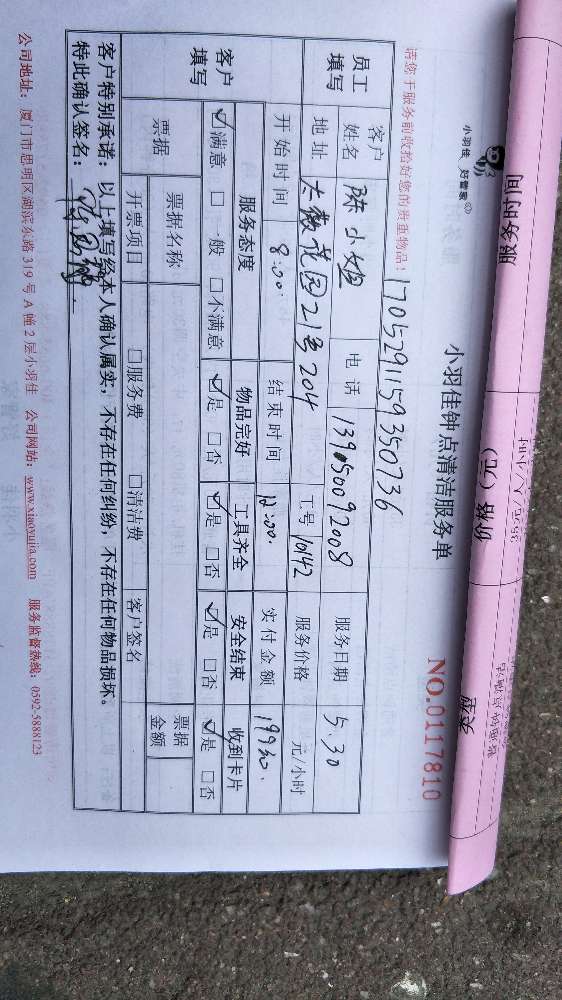 服务时间
价格（元）
小羽佳 好管家
小羽佳钟点清洁服务单
NO.0117810
请您于服务前收拾好您的贵重物品！
170529115935０736
员工填写
客户姓名 陈小姐 电话 13950092008 服务日期 5.30
地址 大薇花园21号204 工号 10142 服务价格 元/小时
开始时间 8:00 结束时间 12:00 实付金额
客户填写
服务态度 物品完好 工具齐全 安全结束 收到卡片
☑满意 □一般 □不满意 ☑是 □否 ☑是 □否 ☑是 □否 ☑是 □否
票据 票据名称 票据金额
开票项目 □服务费 □清洁费 客户签名
客户特别承诺：以上填写经本人确认属实，不存在任何纠纷，不存在任何物品损坏。
特此确认签名：
公司地址：厦门市思明区湖滨东路319号A幢2层小羽佳 公司网站：www.xiaoyujia.com 服务监督热线：0592-5888123